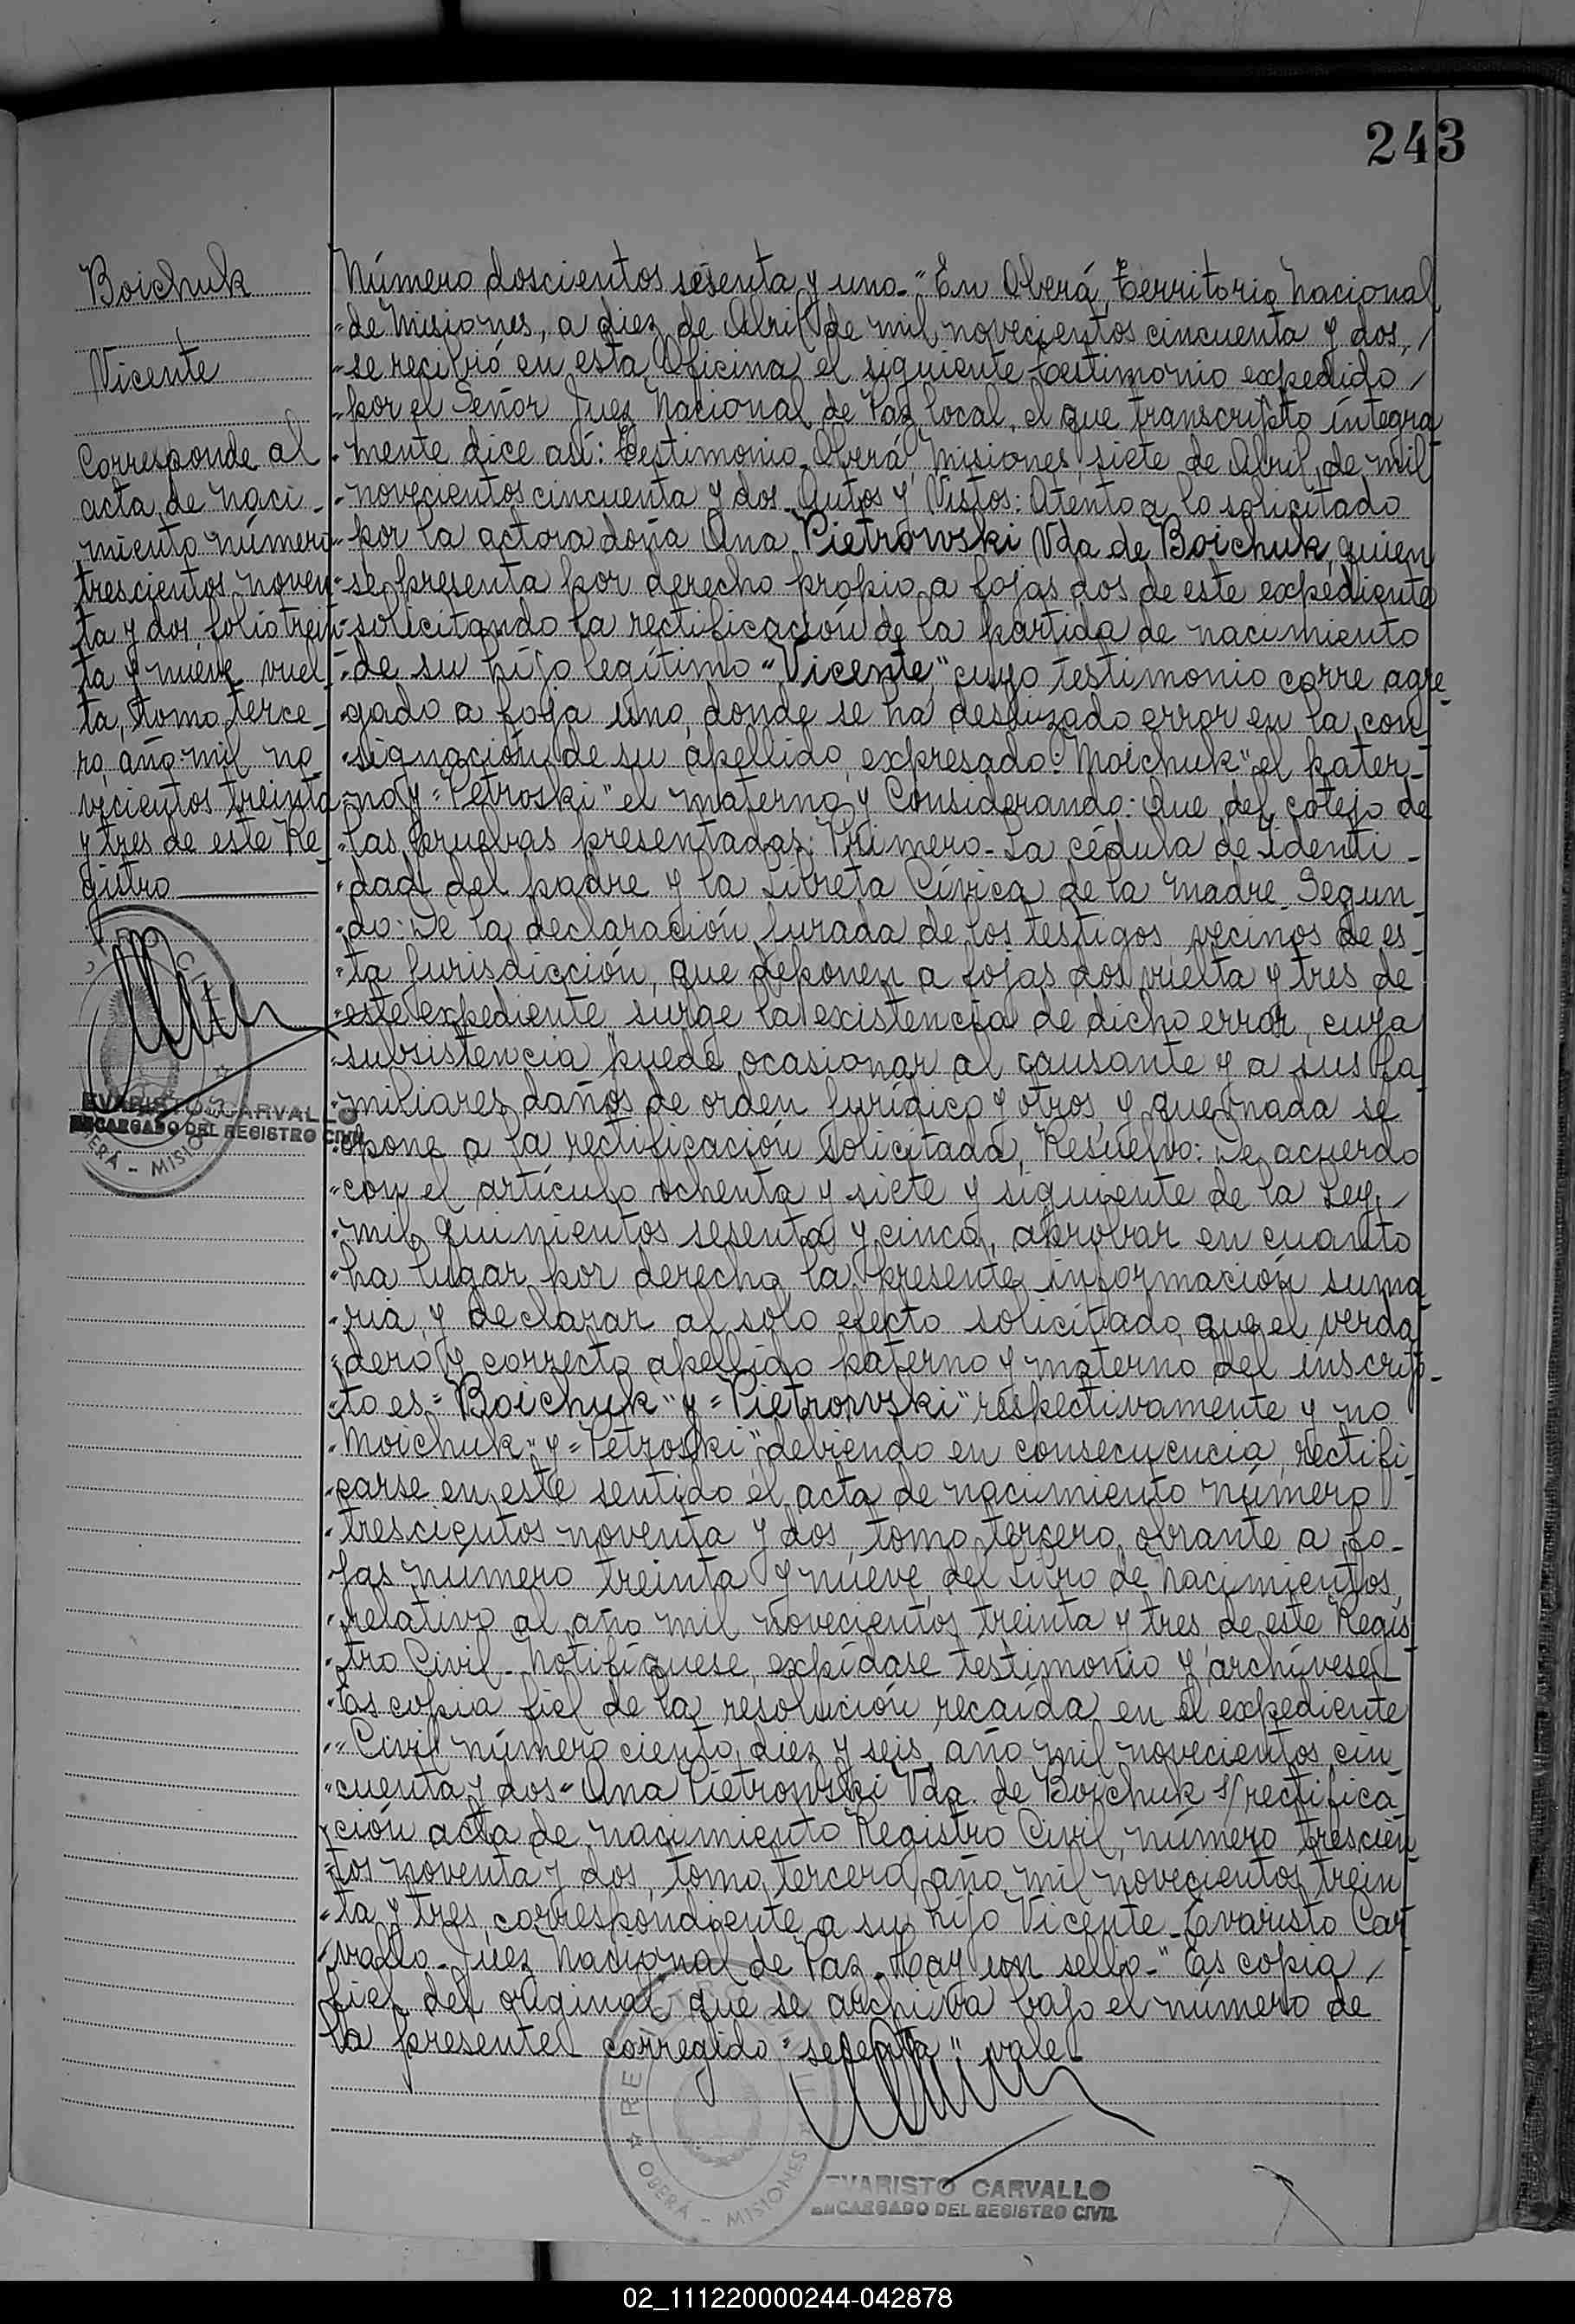 243
Boichuk
Vicente
Corresponde al
acta de naci-
miento número
trescientos noven
ta y dos folio trein
ta y nueve vuel
ta, tomo terce-
ro, año mil no-
vecientos treinta
y tres de este Re-
gistro
EVARISTO CARVALLO
ENCARGADO DEL REGISTRO CIVIL
OBERÁ - MISIONES
Número doscientos sesenta y uno.- "En Oberá, Territorio Nacional
"de Misiones, a diez de Abril de mil novecientos cincuenta y dos, /
"se recibió en esta Oficina el siguiente testimonio expedido /
"por el Señor Juez Nacional de Paz local, el que transcripto íntegra
"mente dice así: Testimonio. Oberá, Misiones, siete de Abril de mil
"novecientos cincuenta y dos. Autos y Vistos: Atento a lo solicitado
"por la actora doña Ana Pietrowski Vda de Boichuk, quien
"se presenta por derecho propio a fojas dos de este expediente
"solicitando la rectificación de la partida de nacimiento
"de su hijo legítimo "Vicente", cuyo testimonio corre agre-
"gado a foja uno, donde se ha deslizado error en la con-
"signación de su apellido, expresado: "Moichuk" el pater-
"no y "Petroski" el materno y Considerando: Que del cotejo de
"las pruebas presentadas: Primero- La cédula de identi-
"dad del padre y la Libreta Cívica de la madre. Segun-
"do: De la declaración jurada de los testigos, vecinos de es-
"ta jurisdicción, que deponen a fojas dos vuelta y tres de
"este expediente, surge la existencia de dicho error, cuya
"subsistencia puede ocasionar al causante y a sus fa-
"miliares daños de orden jurídico y otros, y que nada se
"opone a la rectificación solicitada, Resuelvo: De acuerdo
"con el artículo ochenta y siete y siguiente de la Ley, /
"mil quinientos sesenta y cinco, aprobar en cuanto
"ha lugar por derecho la presente información suma-
"ria, y declarar al solo efecto solicitado, que el verda-
"dero y correcto apellido paterno y materno del inscrip-
"to es "Boichuk" y "Pietrowski" respectivamente y no
"Moichuk" y "Petroski", debiendo en consecuencia, rectifi-
"carse en este sentido el acta de nacimiento número
"trescientos noventa y dos, tomo tercero, obrante a fo-
"jas número treinta y nueve, del Libro de Nacimientos,
"relativo al año mil novecientos treinta y tres de este Regis-
"tro Civil. Notifíquese, expídase testimonio y archívese.-
"Es copia fiel de la resolución recaída en el expediente
"Civil número ciento diez y seis, año mil novecientos cin-
"cuenta y dos "Ana Pietrowski Vda. de Boichuk s/ rectifica-
"ción acta de nacimiento Registro Civil, número trescien-
"tos noventa y dos, tomo tercero, año mil novecientos trein
"ta y tres, correspondiente a su hijo Vicente. Evaristo Car
"vallo. Juez Nacional de Paz. Hay un sello.-" Es copia /
fiel del original que se archiva bajo el número de
la presente. corregido "sesenta" vale.-
OBERÁ - MISIONES
EVARISTO CARVALLO
ENCARGADO DEL REGISTRO CIVIL
02_111220000244-042878